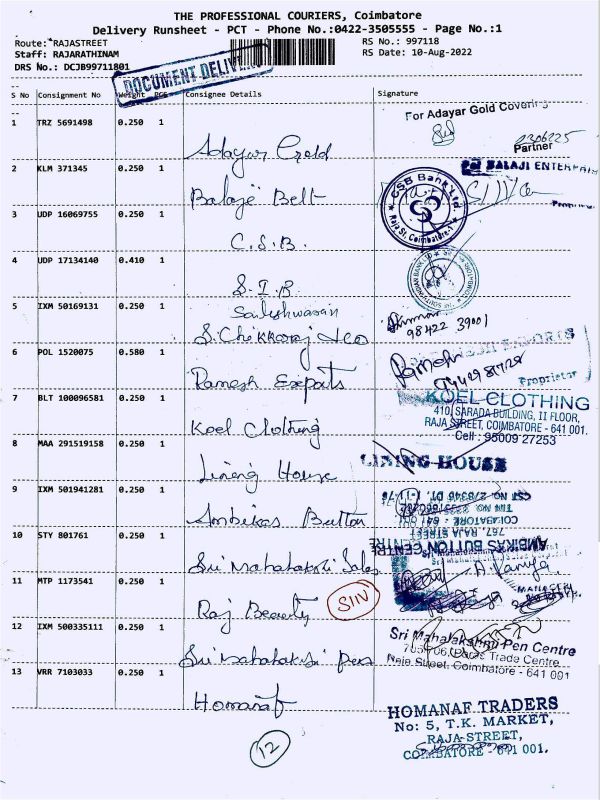 THE PROFESSIONAL COURIERS, Coimbatore
Delivery Runsheet - PCT - Phone No.:0422-3505555 - Page No.:1
Route: RAJASTREET
RS No.: 997118
Staff: RAJARATHINAM
RS Date: 10-Aug-2022
DRS No.: DCJB99711801
DOCUMENT DELIVERY
S No Consignment No Weight PCS Consignee Details Signature
For Adayar Gold Covering
1 TRZ 5691498 0.250 1
Partner
Adayar Gold
2 KLM 371345 0.250 1
BALAJI ENTERPRIS
CSB Bank Ltd.
Raja St. Coimbatore-1
Balaji Belt
3 UDP 16069755 0.250 1
C.S.B.
4 UDP 17134140 0.410 1
S.I.B
5 IXM 50169131 0.250 1
98422 39001
6 POL 1520075 0.580 1
Proprietor
Ramesh Exports
7 BLT 100096581 0.250 1
KOEL CLOTHING
410, SARADA BUILDING, II FLOOR,
RAJA STREET, COIMBATORE - 641 001.
Cell : 95009 27253
Koel Clothing
8 MAA 291519158 0.250 1
LINING HOUSE
Lining House
9 IXM 501941281 0.250 1
COIMBATORE - 641 001
767, RAJA STREET,
AMBIKAS BUTTON CENTRE
Ambikas Button
10 STY 801761 0.250 1
Sri Mahalakshmi Sales
MANAGER
11 MTP 1173541 0.250 1
SIIV
Raj Beauty
12 IXM 500335111 0.250 1
Sri Mahalakshmi Pen Centre
Trade Centre
Raja Street, Coimbatore - 641 001
Sri Mahalakshmi Pens
13 VRR 7103033 0.250 1
Homanaf
HOMANAF TRADERS
No: 5, T.K. MARKET,
RAJA-STREET,
COIMBATORE - 641 001.
12